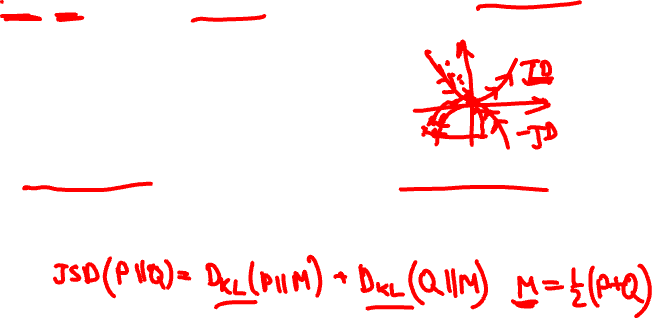 JD
-JD
JSD(P||Q) = D_KL(P||M) + D_KL(Q||M) M = 1/2(P+Q)